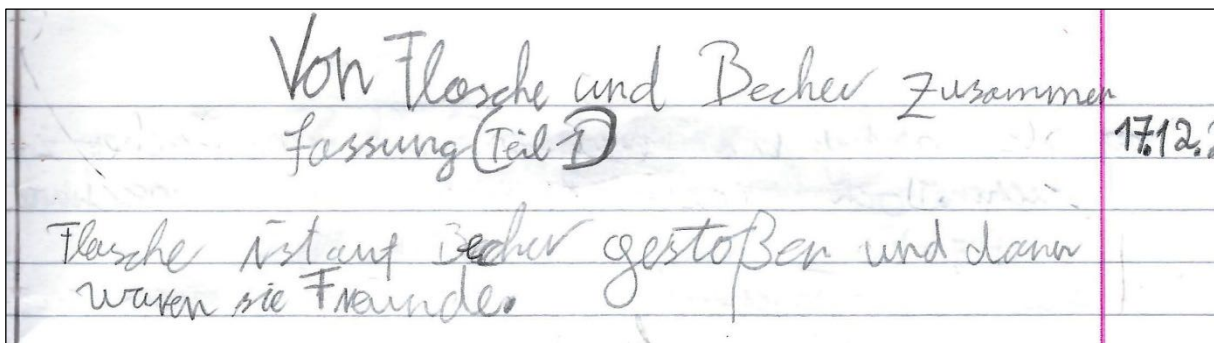 Von Flasche und Becher Zusammen
fassung (Teil 1)
17.12.
Flasche ist auf Becher gestoßen und dann
waren sie Freunde.